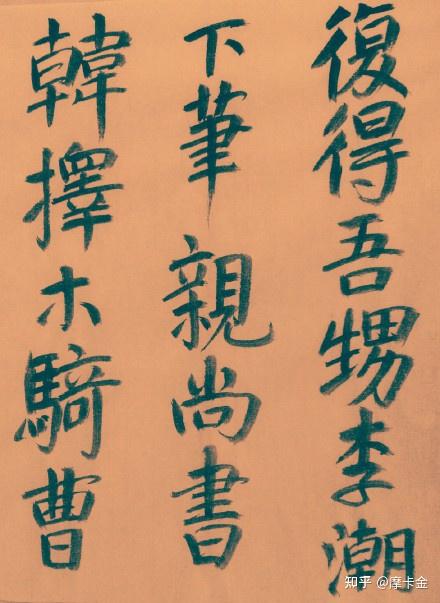 復得吾甥李潮
下筆親尚書
韓擇木騎曹
知乎 @摩卡金